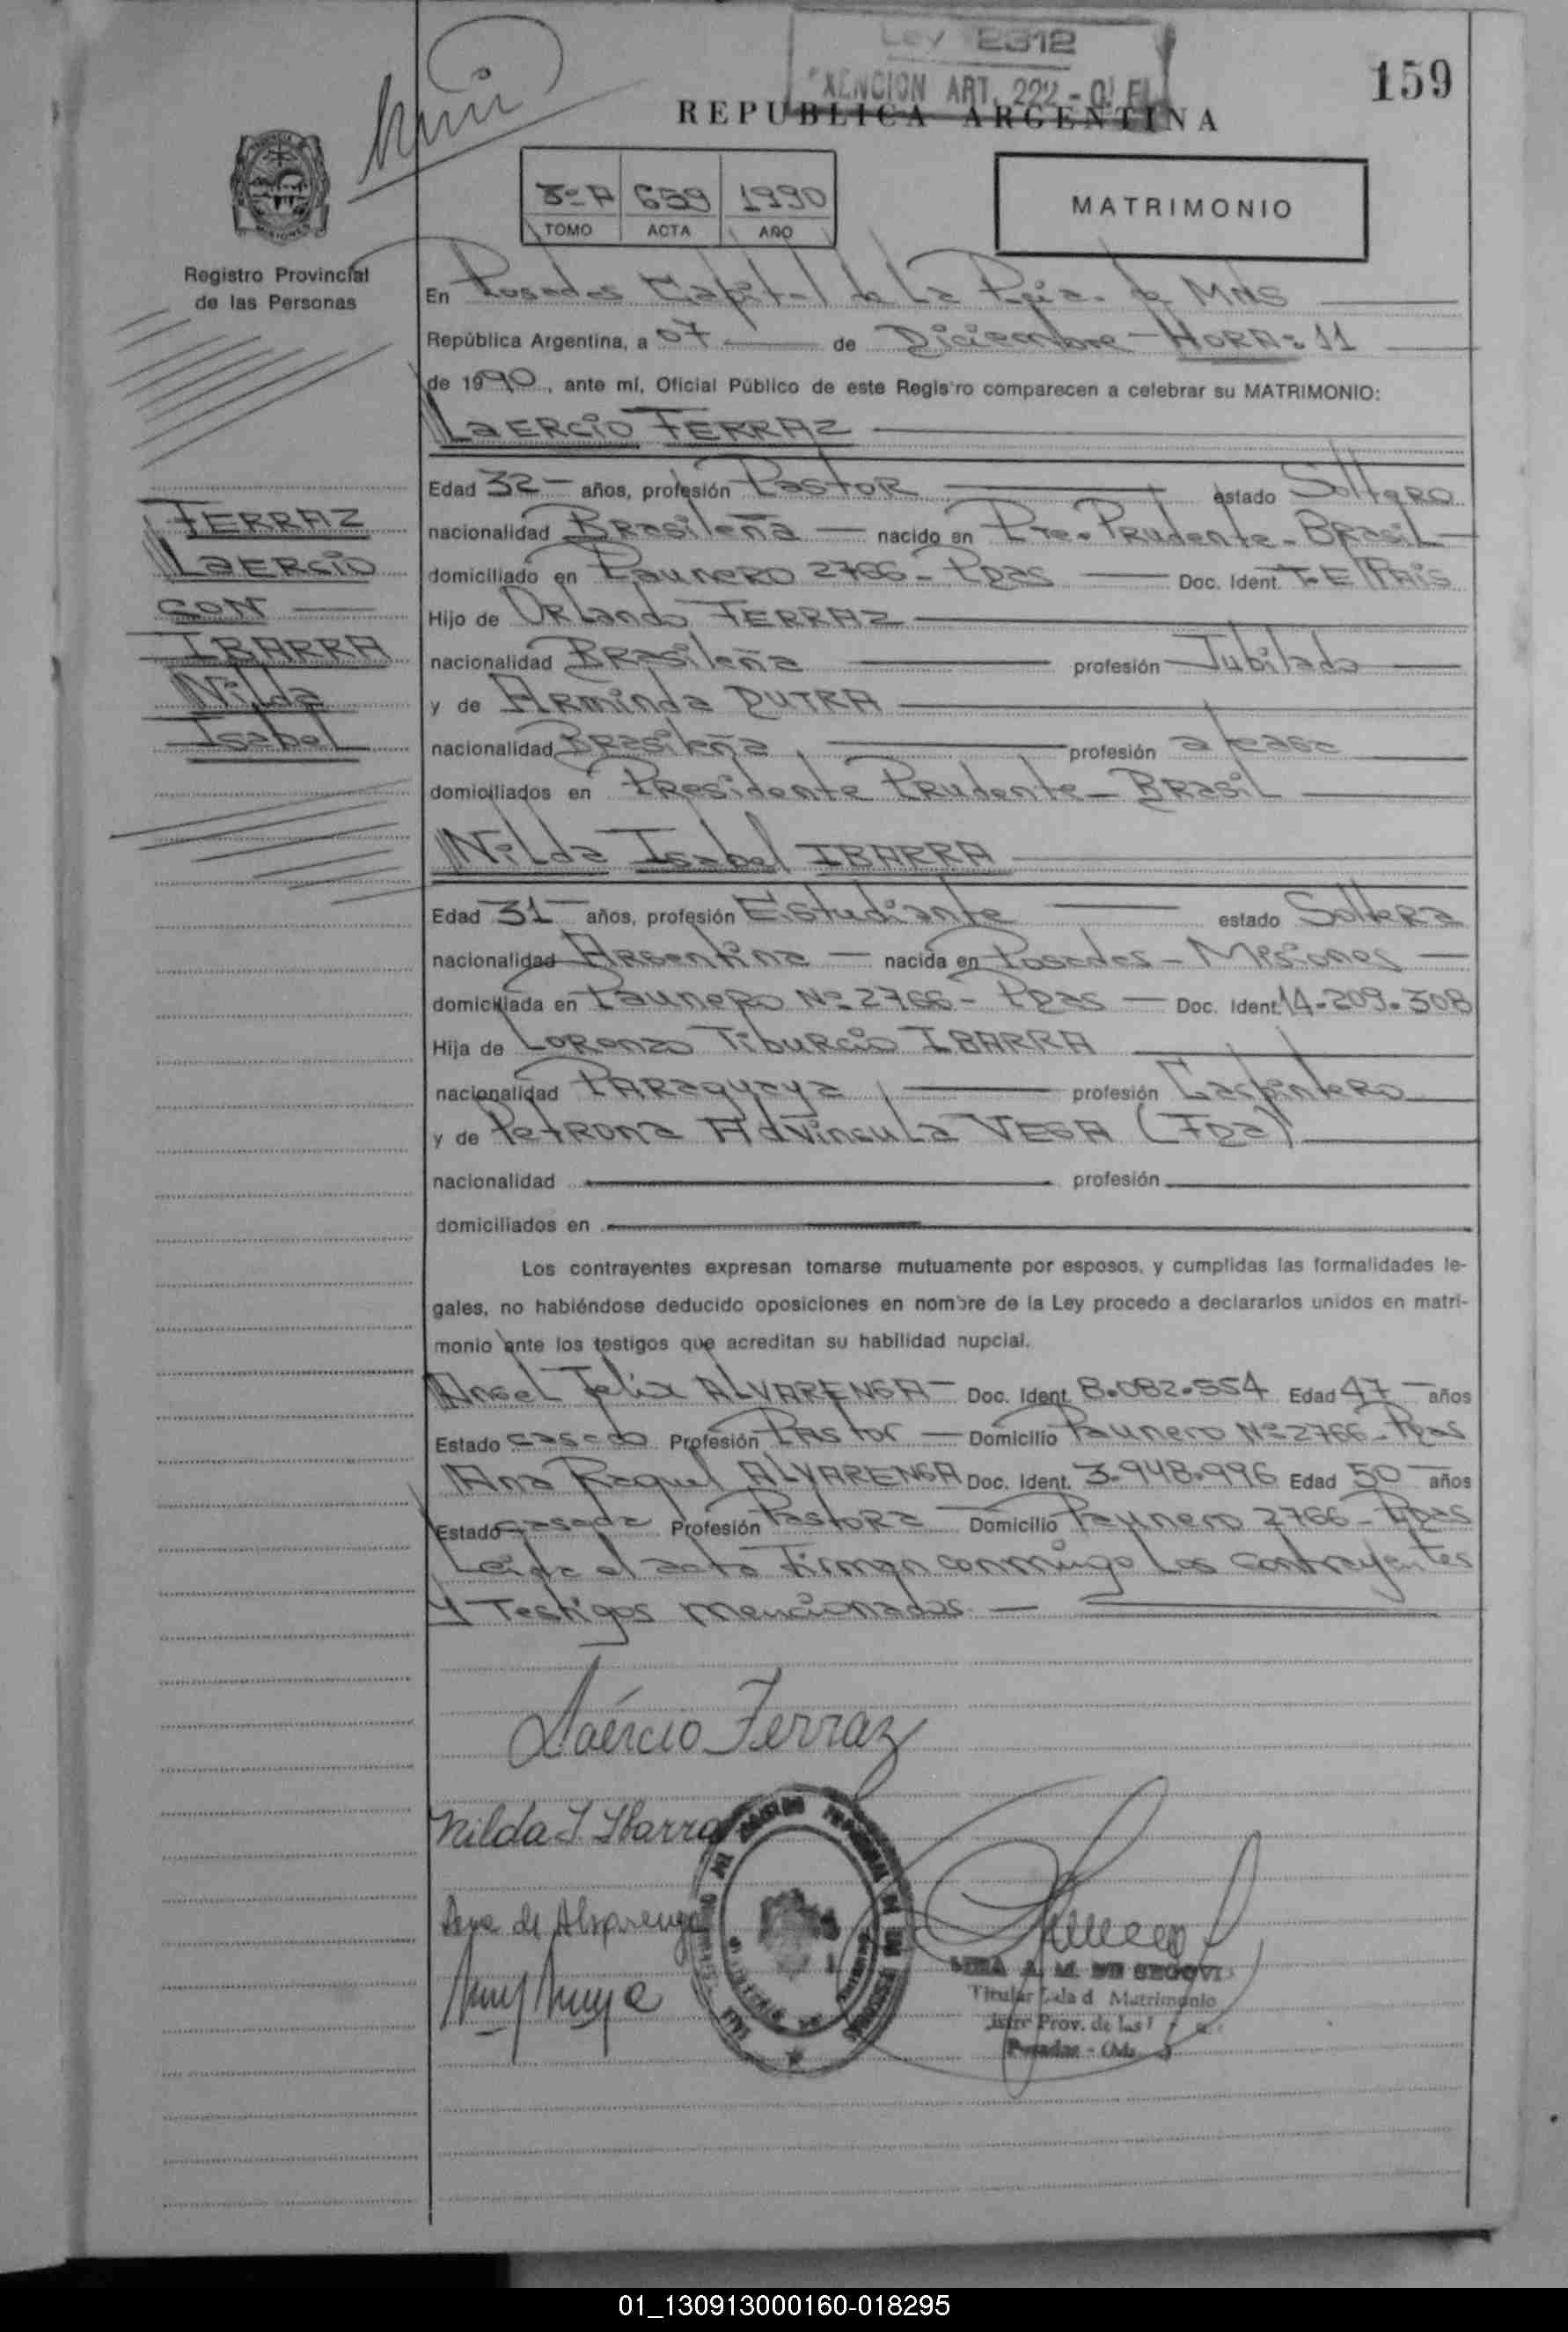 Ley 2312
EXENCION ART. 222 -
159
REPUBLICA ARGENTINA
3º A 659 1990
TOMO ACTA AÑO
MATRIMONIO
Registro Provincial
de las Personas
En Posadas Capital de La Pcia. de Mnes
República Argentina, a 07 de Diciembre - HORA: 11
de 1990, ante mí, Oficial Público de este Registro comparecen a celebrar su MATRIMONIO:
LaERCiO FERRAZ
Edad 32 años, profesión Pastor estado Soltero
nacionalidad Brasileña nacido en Pte. Prudente - Brasil
domiciliado en Paunero 2766 - Pdas Doc. Ident. T.E/PAis
Hijo de Orlando FERRAZ
nacionalidad Brasileña profesión Jubilado
y de Arminda DUTRA
nacionalidad Brasileña profesión a/casa
domiciliados en Presidente Prudente - Brasil
FERRAZ
LaERCiO
CON
IBARRA
Nilda
Isabel
Nilda Isabel IBARRA
Edad 31 años, profesión Estudiante estado Soltera
nacionalidad Argentina nacida en Posadas - Misiones
domiciliada en Paunero Nº 2766 - Pdas Doc. Ident. 14.209.308
Hija de Lorenzo Tiburcio IBARRA
nacionalidad Paraguaya profesión Carpintero
y de Petrona Advincula VEGA (Fda)
nacionalidad profesión
domiciliados en
Los contrayentes expresan tomarse mutuamente por esposos, y cumplidas las formalidades le-
gales, no habiéndose deducido oposiciones en nombre de la Ley procedo a declararlos unidos en matri-
monio ante los testigos que acreditan su habilidad nupcial.
Angel Felix ALVARENGA - Doc. Ident. 8.082.554 Edad 47 años
Estado casado Profesión Pastor Domicilio Paunero Nº 2766 - Pdas
Ana Raquel ALVARENGA Doc. Ident. 3.948.996 Edad 50 años
Estado casada Profesión Pastora Domicilio Paunero 2766 - Pdas
Leida el acta Firman conmigo Los contrayentes
Y Testigos mencionados.
Laércio Ferraz
Nilda I Ibarra
de Alvarenga
A. M. DE SEGOVI
Titular Matrimonio
Prov. de las
Posadas -
01_130913000160-018295